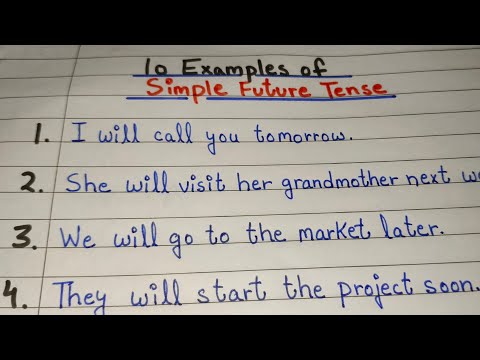 10 Examples of
Simple Future Tense
1. I will call you tomorrow.
2. She will visit her grandmother next
3. We will go to the market later.
4. They will start the project soon.